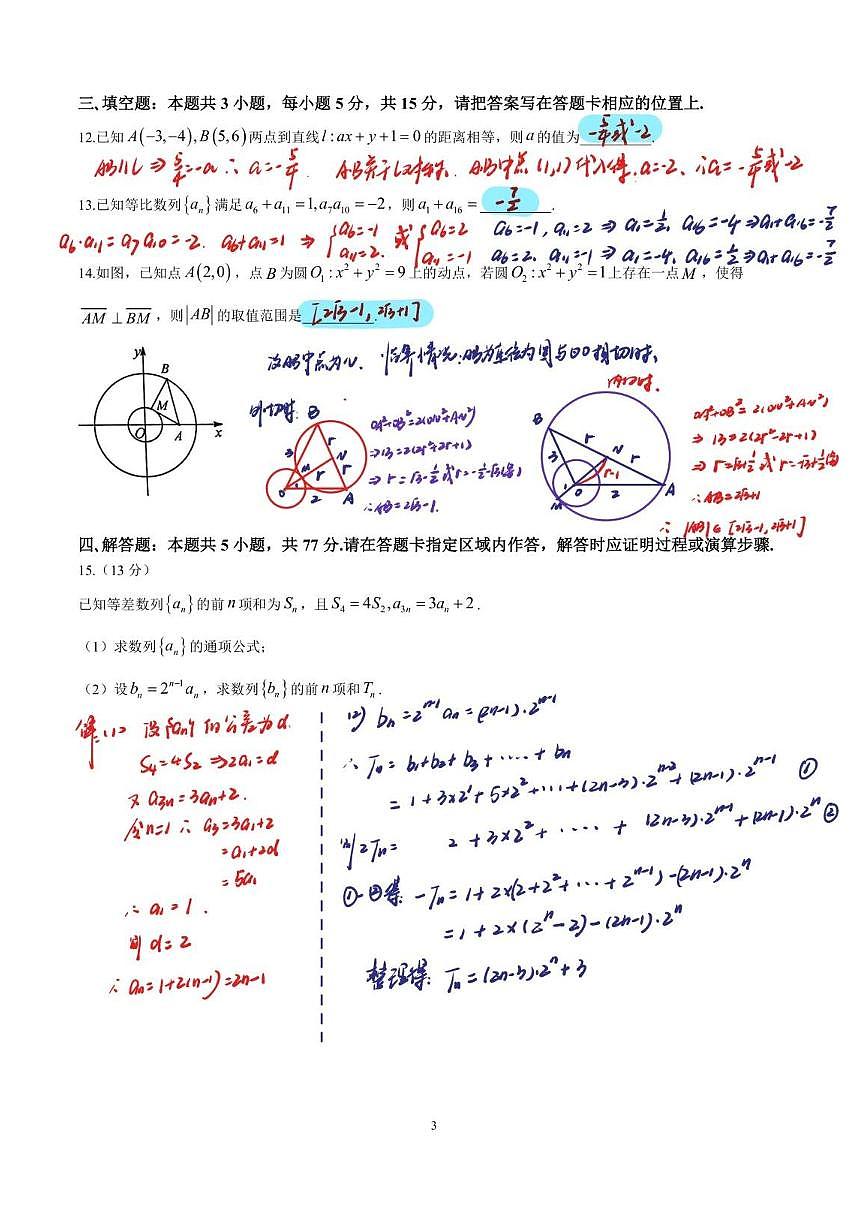 三、填空题：本题共 3 小题，每小题 5 分，共 15 分，请把答案写在答题卡相应的位置上.
12.已知 A(−3,−4), B(5,6) 两点到直线 l : ax + y + 1 = 0 的距离相等，则 a 的值为 -5/4或-2 .
AB∥l ⇒ 5/4=-a ∴ a=-5/4 AB关于l对称, AB中点(1,1)代入得, a=-2, ∴a=-5/4或-2
13.已知等比数列{aₙ}满足 a₆ + a₁₁ = 1, a₇a₁₀ = −2，则 a₁ + a₁₆ = -7/2 .
a₆·a₁₁=a₇a₁₀=-2. a₆+a₁₁=1 ⇒ {a₆=-1 a₁₁=2. 或 {a₆=2 a₁₁=-1
a₆=-1, a₁₁=2 ⇒ a₁=1/2, a₁₆=-4 ⇒ a₁+a₁₆=-7/2
a₆=2, a₁₁=-1 ⇒ a₁=-4, a₁₆=1/2 ⇒ a₁+a₁₆=-7/2
14.如图，已知点 A(2,0)，点 B 为圆 O₁ : x² + y² = 9 上的动点，若圆 O₂ : x² + y² = 1 上存在一点 M，使得
AM ⊥ BM，则 |AB| 的取值范围是 [2√3-1, 2√3+1] .
设AB中点为N. 临界情况:AB为直径的圆与⊙O相切时,
y
B
M
O
A
x
外切时:
B
3
M
N
r
r
r
O
1
2
A
OA²+OB²=2(ON²+AN²)
⇒13=2(2r²+2r+1)
⇒ r=√3-1/2或r=-1/2-√3(舍)
∴AB=2√3-1.
内切时.
B
r
3
N
r
r-1
O
2
A
M
OA²+OB²=2(ON²+AN²)
⇒ 13=2(2r²-2r+1)
⇒ r=√3+1/2或r=-√3+1/2(舍)
∴AB=2√3+1
∴ |AB|∈[2√3-1, 2√3+1]
四、解答题：本题共 5 小题，共 77 分.请在答题卡指定区域内作答，解答时应证明过程或演算步骤.
15.（13 分）
已知等差数列{aₙ}的前 n 项和为 Sₙ，且 S₄ = 4S₂, a₃ₙ = 3aₙ + 2 .
（1）求数列{aₙ}的通项公式;
（2）设 bₙ = 2ⁿ⁻¹aₙ，求数列{bₙ}的前 n 项和 Tₙ .
解:(1) 设{aₙ}的公差为d.
S₄=4S₂ ⇒2a₁=d
又 a₃ₙ=3aₙ+2.
令n=1 ∴ a₃=3a₁+2
=a₁+2d
=5a₁
∴ a₁=1.
则 d=2
∴ aₙ=1+2(n-1)=2n-1
(2) bₙ=2ⁿ⁻¹aₙ=(2n-1)·2ⁿ⁻¹
∴ Tₙ=b₁+b₂+b₃+……+bₙ
=1+3×2¹+5×2²+……+(2n-3)·2ⁿ⁻²+(2n-1)·2ⁿ⁻¹ ①
则2Tₙ= 2+3×2²+……+(2n-3)·2ⁿ⁻¹+(2n-1)·2ⁿ ②
①-②得 -Tₙ=1+2×(2+2²+…+2ⁿ⁻¹)-(2n-1)·2ⁿ
=1+2×(2ⁿ-2)-(2n-1)·2ⁿ
整理得: Tₙ=(2n-3)·2ⁿ+3
3